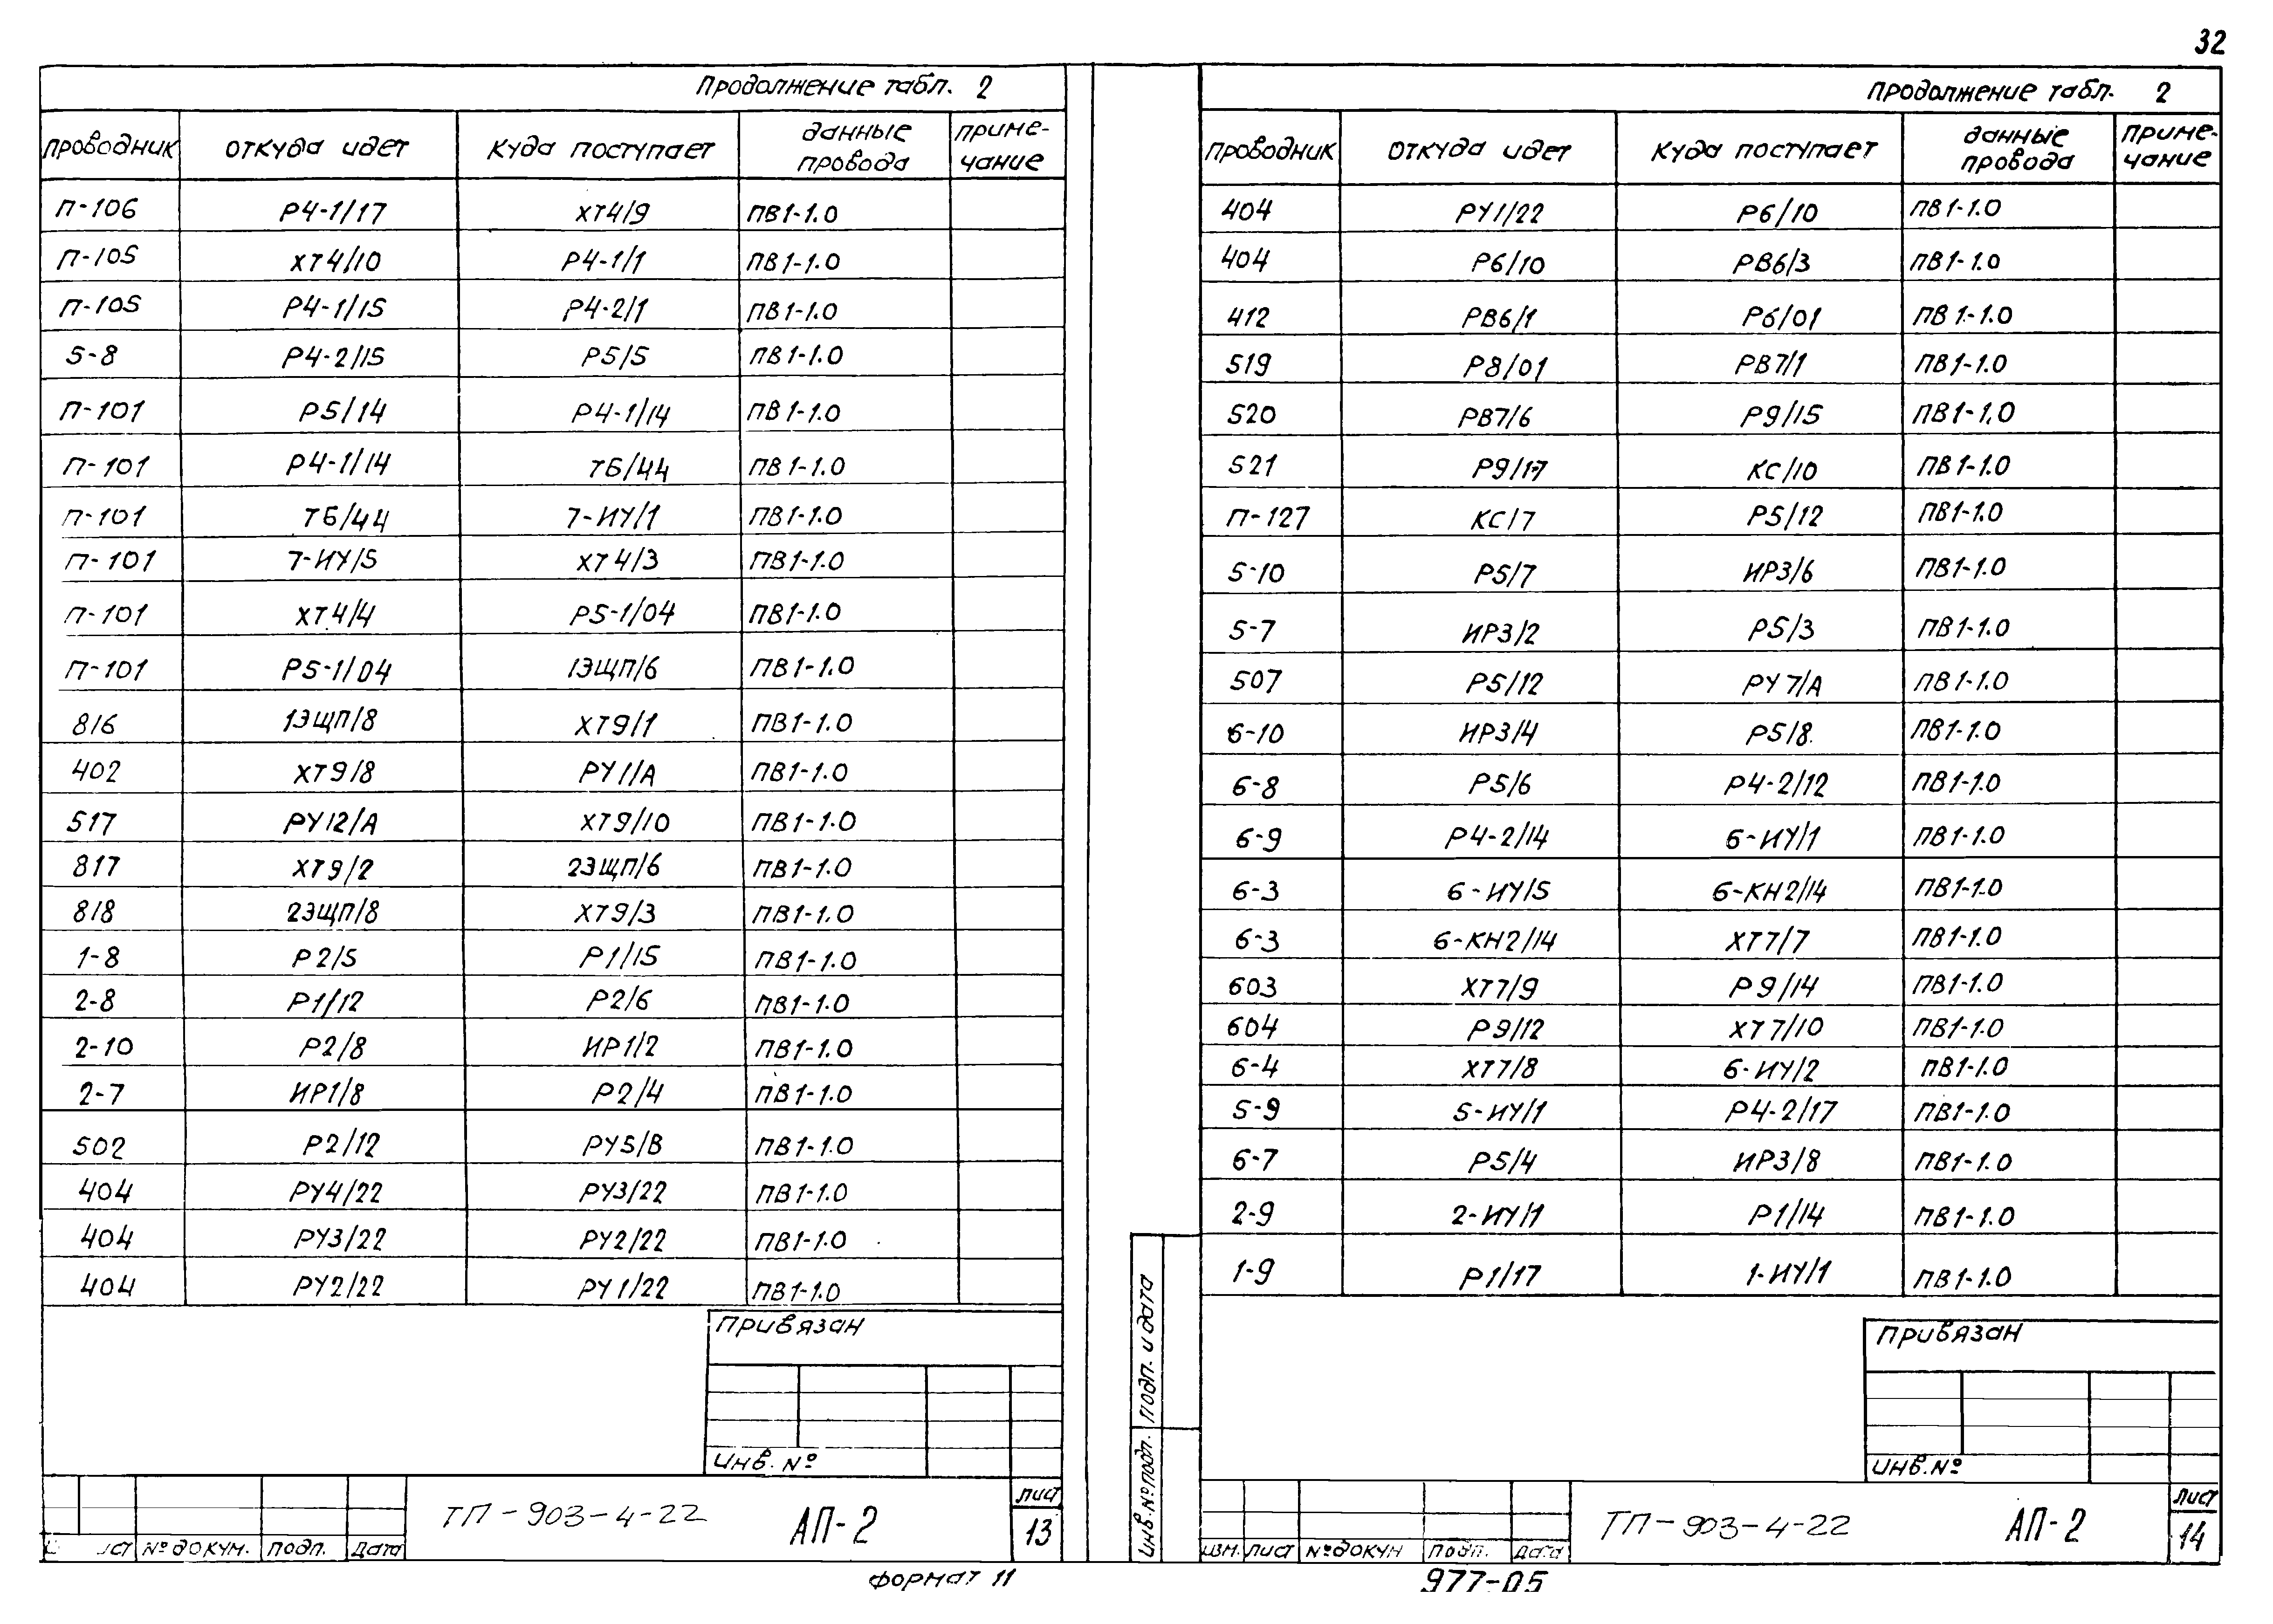 32
Продолжение табл. 2
проводник откуда идет куда поступает данные провода примечание
П-106 Р4-1/17 ХТ4/9 ПВ1-1.0
П-105 ХТ4/10 Р4-1/1 ПВ1-1.0
П-105 Р4-1/15 Р4-2/1 ПВ1-1.0
5-8 Р4-2/15 Р5/5 ПВ1-1.0
П-101 Р5/14 Р4-1/14 ПВ1-1.0
П-101 Р4-1/14 ТБ/44 ПВ1-1.0
П-101 ТБ/44 7-ИУ/1 ПВ1-1.0
П-101 7-ИУ/5 ХТ4/3 ПВ1-1.0
П-101 ХТ4/4 Р5-1/04 ПВ1-1.0
П-101 Р5-1/04 1ЭЩП/6 ПВ1-1.0
816 1ЭЩП/8 ХТ9/1 ПВ1-1.0
402 ХТ9/8 РУ1/А ПВ1-1.0
517 РУ12/А ХТ9/10 ПВ1-1.0
817 ХТ9/2 2ЭЩП/6 ПВ1-1.0
818 2ЭЩП/8 ХТ9/3 ПВ1-1.0
1-8 Р2/5 Р1/15 ПВ1-1.0
2-8 Р1/12 Р2/6 ПВ1-1.0
2-10 Р2/8 ИР1/2 ПВ1-1.0
2-7 ИР1/8 Р2/4 ПВ1-1.0
502 Р2/12 РУ5/В ПВ1-1.0
404 РУ4/22 РУ3/22 ПВ1-1.0
404 РУ3/22 РУ2/22 ПВ1-1.0
404 РУ2/22 РУ1/22 ПВ1-1.0
Привязан
Инв. №
№ докум. подп. Дата
ТП-903-4-22 АП-2
лист
13
формат 11
Продолжение табл. 2
проводник откуда идет куда поступает данные провода примечание
404 РУ1/22 Р6/10 ПВ1-1.0
404 Р6/10 РВ6/3 ПВ1-1.0
412 РВ6/1 Р6/01 ПВ1-1.0
519 Р8/01 РВ7/1 ПВ1-1.0
520 РВ7/6 Р9/15 ПВ1-1,0
521 Р9/17 КС/10 ПВ1-1.0
П-127 КС/7 Р5/12 ПВ1-1.0
5-10 Р5/7 ИР3/6 ПВ1-1.0
5-7 ИР3/2 Р5/3 ПВ1-1.0
507 Р5/12 РУ7/А ПВ1-1.0
6-10 ИР3/4 Р5/8 ПВ1-1.0
6-8 Р5/6 Р4-2/12 ПВ1-1.0
6-9 Р4-2/14 6-ИУ/1 ПВ1-1.0
6-3 6-ИУ/5 6-КН2/14 ПВ1-1.0
6-3 6-КН2/14 ХТ7/7 ПВ1-1.0
603 ХТ7/9 Р9/14 ПВ1-1.0
604 Р9/12 ХТ7/10 ПВ1-1.0
6-4 ХТ7/8 6-ИУ/2 ПВ1-1.0
5-9 5-ИУ/1 Р4-2/17 ПВ1-1.0
6-7 Р5/4 ИР3/8 ПВ1-1.0
2-9 2-ИУ/1 Р1/14 ПВ1-1.0
1-9 Р1/17 1-ИУ/1 ПВ1-1.0
Инв.№подл. Подп. и дата
Привязан
Инв.№
изм. лист №докум подп. дата
ТП-903-4-22 АП-2
лист
14
977-05